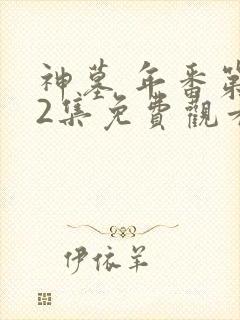 神墓 年番第
2集免費觀看
伊依羊